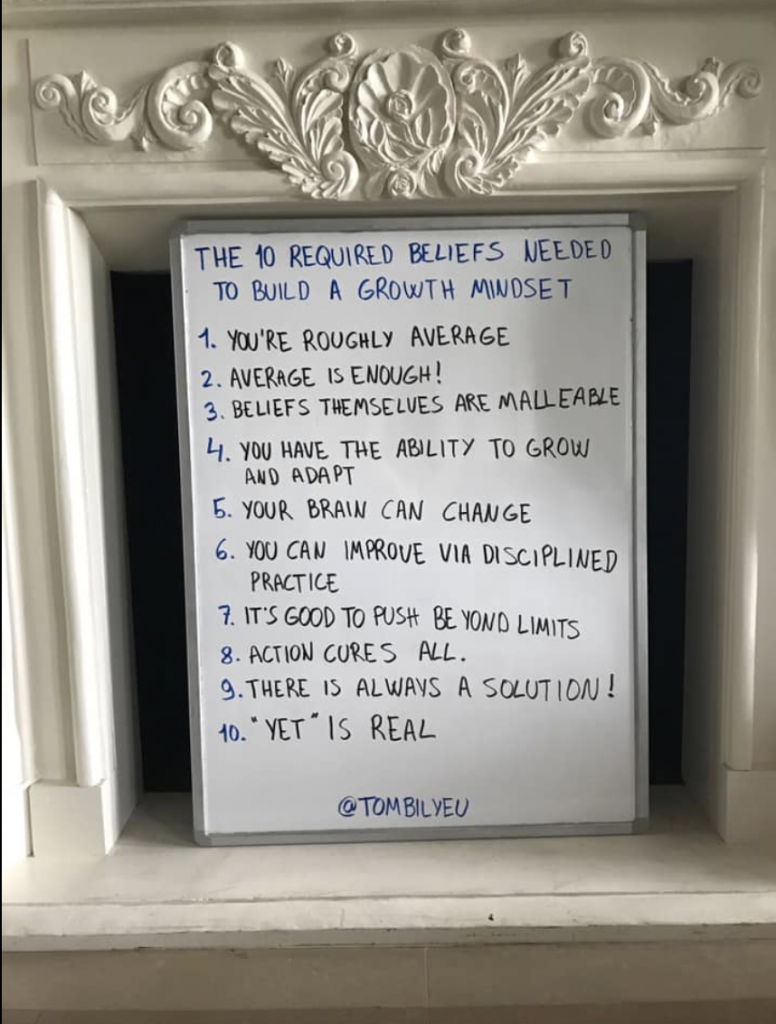 THE 10 REQUIRED BELIEFS NEEDED
TO BUILD A GROWTH MINDSET
1. YOU'RE ROUGHLY AVERAGE
2. AVERAGE IS ENOUGH!
3. BELIEFS THEMSELVES ARE MALLEABLE
4. YOU HAVE THE ABILITY TO GROW
AND ADAPT
5. YOUR BRAIN CAN CHANGE
6. YOU CAN IMPROVE VIA DISCIPLINED
PRACTICE
7. IT'S GOOD TO PUSH BEYOND LIMITS
8. ACTION CURES ALL.
9. THERE IS ALWAYS A SOLUTION!
10. "YET" IS REAL
@TOMBILYEU